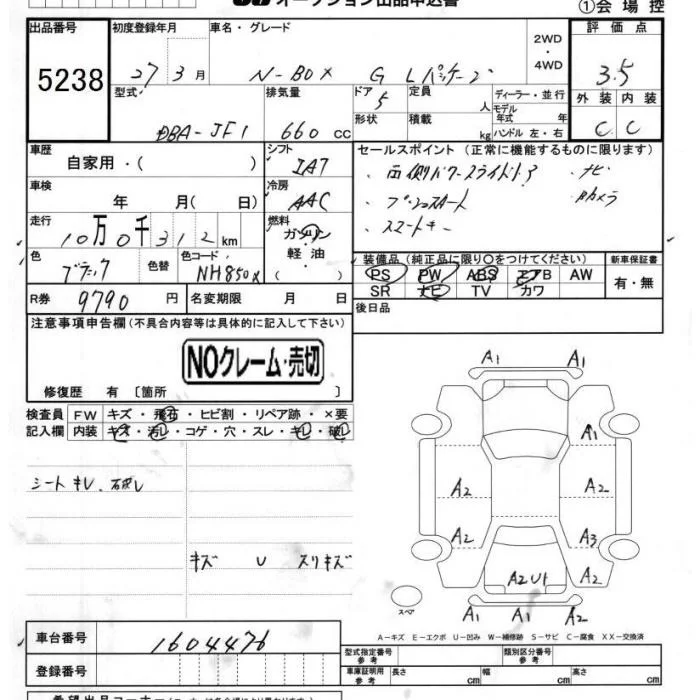 オークション出品申込書 ①会場控
出品番号 初度登録年月 車名・グレード 2WD・4WD 評価点
5238 27 3月 N-BOX G Lパッケージ 3.5
型式 排気量 ドア 5 定員 人 ディーラー・並行 外装 内装
DBA-JF1 660 cc 形状 積載 kg モデル年式 年式 ハンドル 左・右 C C
車歴 シフト セールスポイント (正常に機能するものに限ります)
自家用・( ) IAT ・両側パワースライドドア ・ナビ
車検 冷房 ・プッシュスタート ・Bカメラ
年 月( 日) AAC ・スマートキー
走行 燃料
10万0千312km ガソリン
色 色替 色コード 軽油
ブラック NH850X ( )
装備品 (純正品に限り○をつけてください) 新車保証書
PS PW ABS エアB AW 有・無
SR ナビ TV カワ
R券 9790 円 名変期限 月 日 後日品
注意事項申告欄 (不具合内容等は具体的に記入して下さい)
NOクレーム・売切
修復歴 有 〔箇所 〕
検査員 FW キズ・飛石・ヒビ割・リペア跡・×要
記入欄 内装 キズ・汚レ・コゲ・穴・スレ・キレ・破レ
シートキレ、破レ
キズ U スリキズ
A1 A1
A1
A2 A2
A2 A3
A2U1 A2
スペア A1 A1 A2
A-キズ E-エクボ U-凹み W-補修跡 S-サビ C-腐食 XX-交換済
車台番号 1604476
型式指定番号 参考 類別区分番号 参考
登録番号 車庫証明用 参考 長さ cm 幅 cm 高さ cm
希望出品コーナー